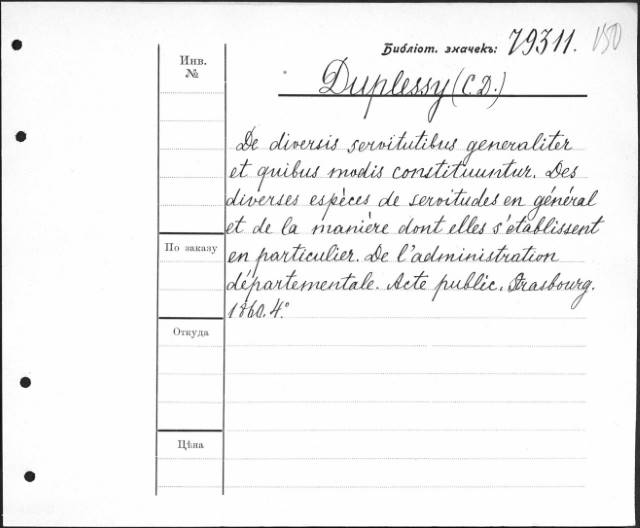 Библіот. значекъ: 79311. 150
Инв.
№
Duplessy (C. D.)
De diversis servitutibus generaliter
et quibus modis constituuntur. Des
diverses espèces de servitudes en général
et de la manière dont elles s'établissent
По заказу
en particulier. De l'administration
départementale. Acte public. Strasbourg.
1860. 4.°
Откуда
Цѣна